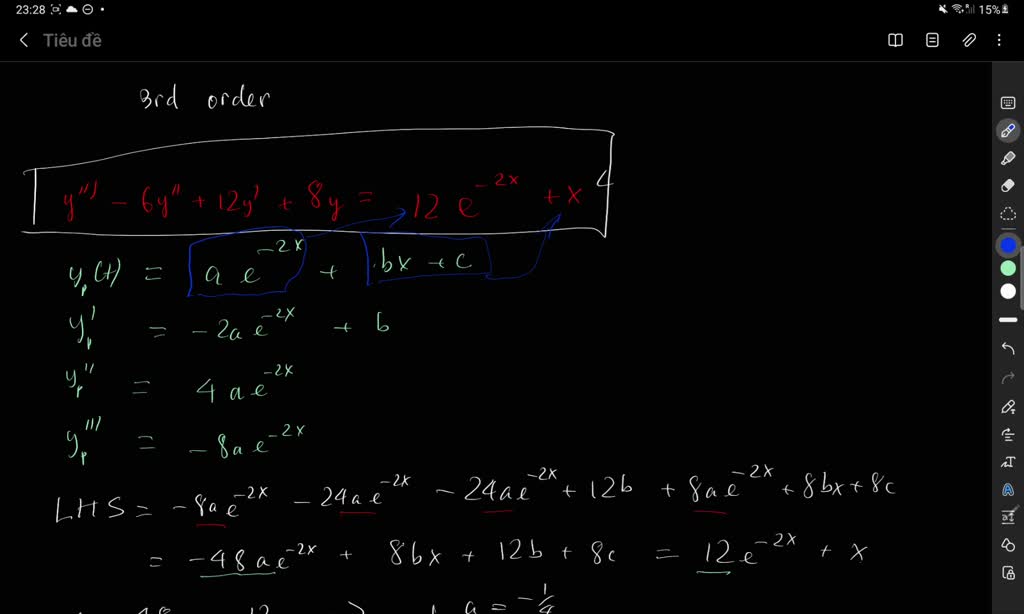 23:28 15%
Tiêu đề
3rd order
y''' - 6y'' + 12y' + 8y = 12 e^{-2x} + x
y_p(t) = a e^{-2x} + bx + c
y_p' = -2a e^{-2x} + b
y_p'' = 4 a e^{-2x}
y_p''' = -8a e^{-2x}
LHS = -8a e^{-2x} - 24a e^{-2x} - 24a e^{-2x} + 12b + 8a e^{-2x} + 8bx + 8c
= -48a e^{-2x} + 8bx + 12b + 8c = 12 e^{-2x} + x